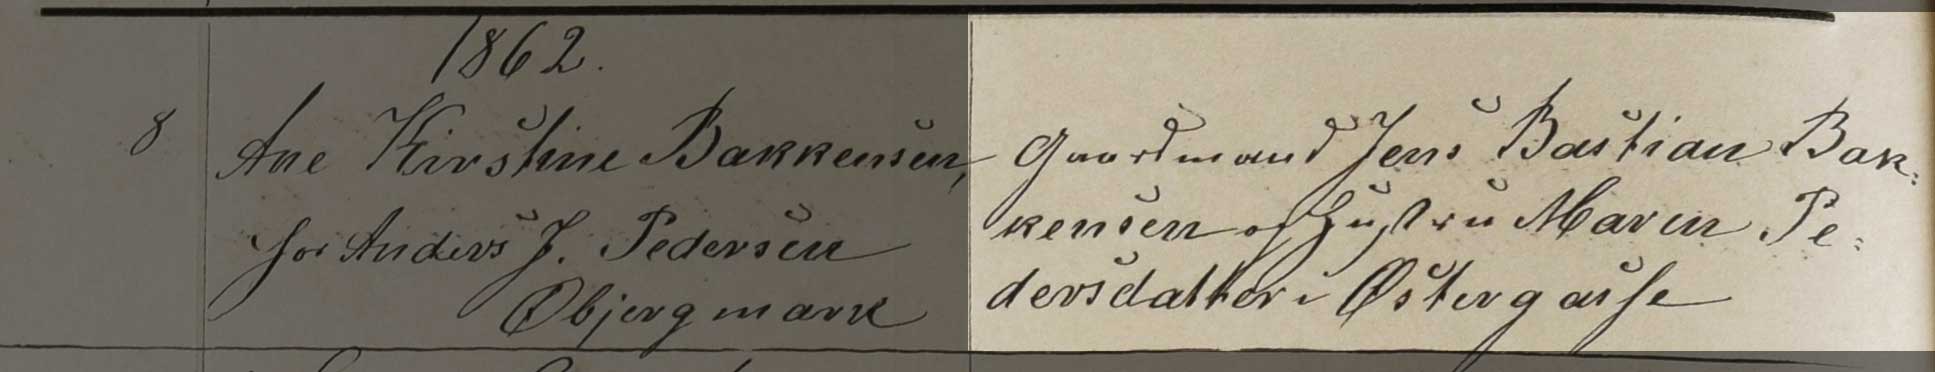 1862.
8 Ane Kirstine Bakkensen,
for Anders J. Pedersen
Øbjergmark
Gaardmand Jens Bastian Bak-
kensen og Hustru Maren Pe-
dersdatter i Østergasse